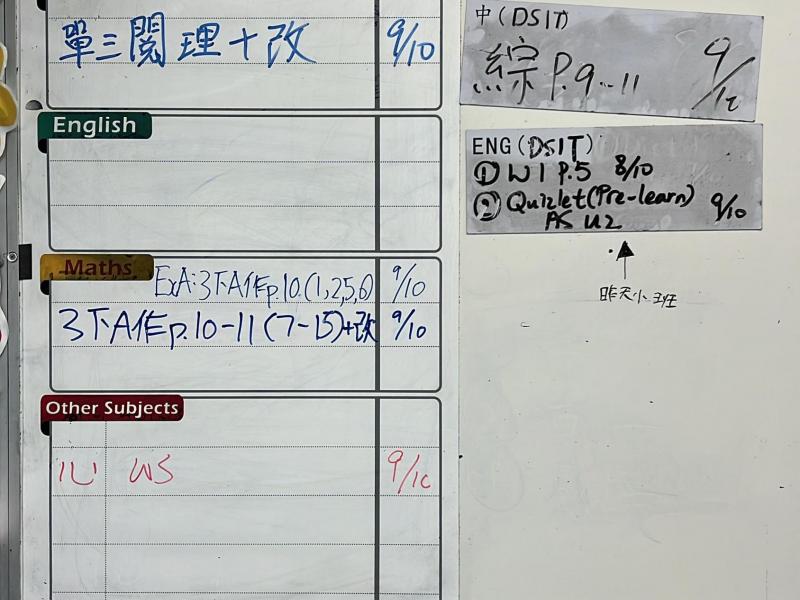 單三閱理+改 9/10
English
Maths
ExA:3下A作p.10.(1,2,5,6) 9/10
3下A作p.10-11(7-15)+改 9/10
Other Subjects
心 WS 9/10
中(DSIT)
綜 P.9-11 9/10
ENG(DSIT)
① W1 P.5 8/10
② Quizlet(Pre-learn) 9/10
AS U2
昨天小班